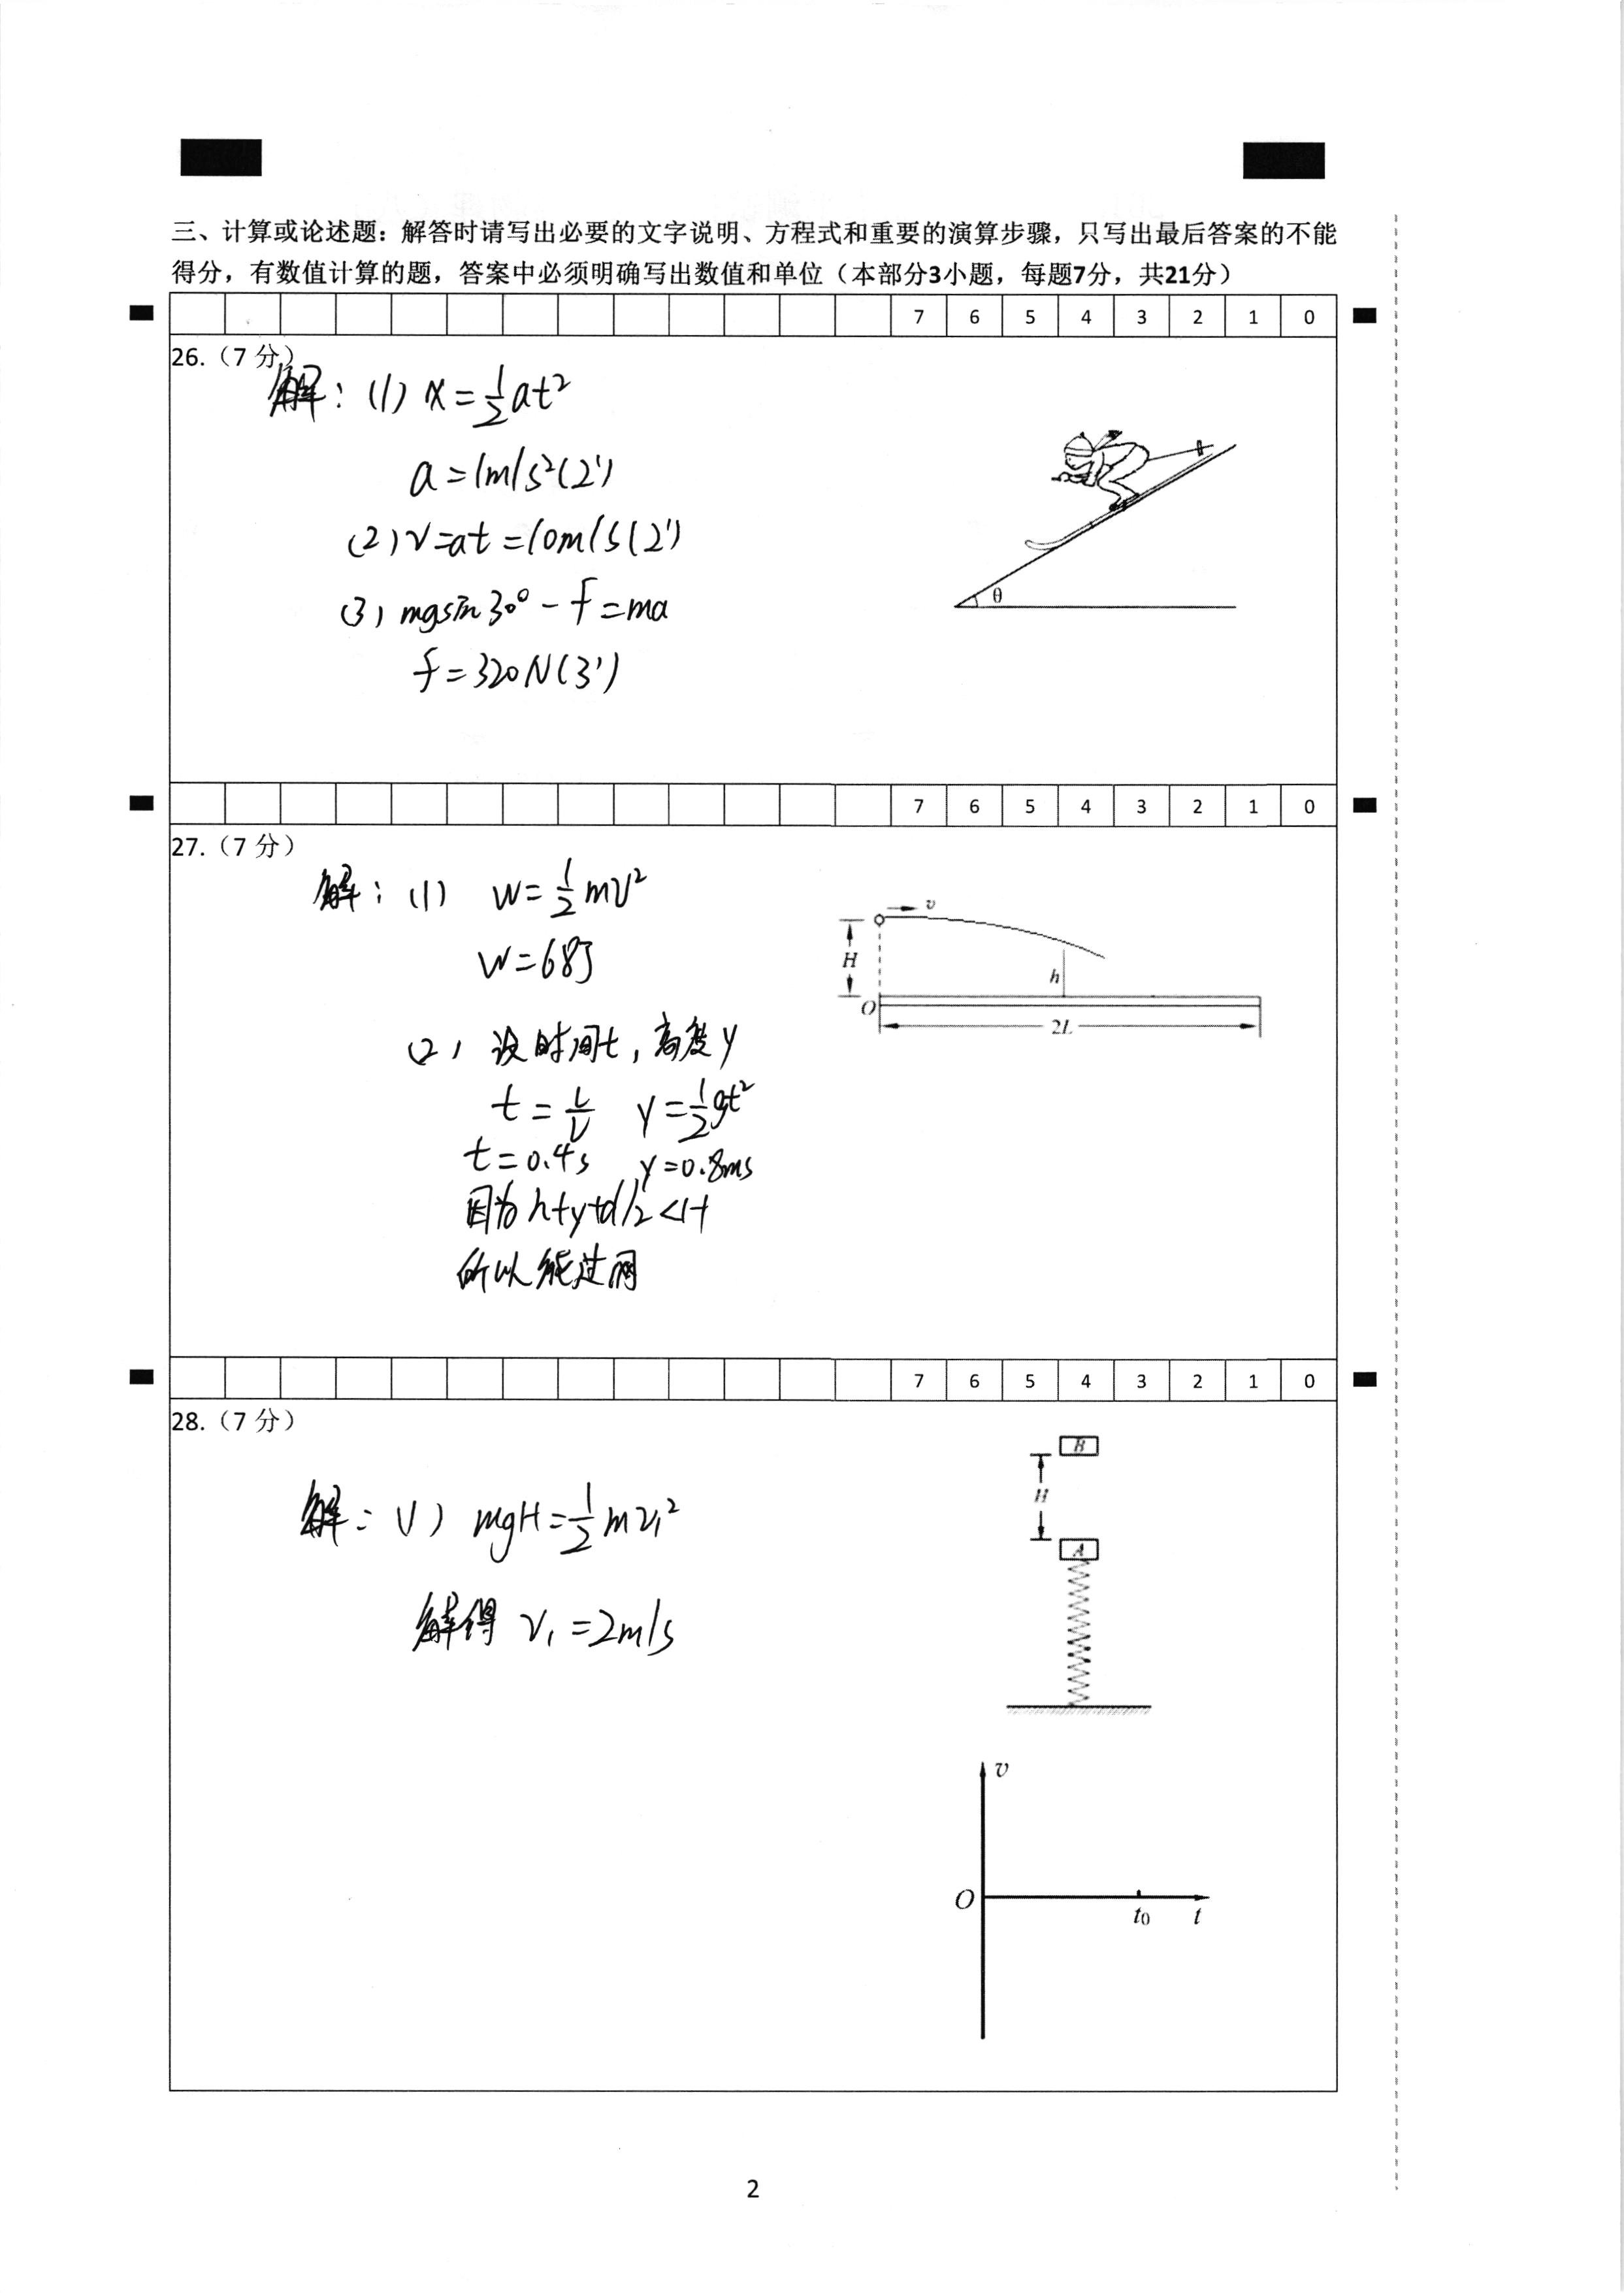 三、计算或论述题：解答时请写出必要的文字说明、方程式和重要的演算步骤，只写出最后答案的不能
得分，有数值计算的题，答案中必须明确写出数值和单位（本部分3小题，每题7分，共21分）
7 6 5 4 3 2 1 0
26.（7 分）
解：(1) x=½at²
a=1m/s²(2')
(2) v=at=10m/s(2')
(3) mgsin30°-f=ma
f=320N(3')
θ
7 6 5 4 3 2 1 0
27.（7 分）
解：(1) W=½mv²
W=68J
(2) 设时间t，高度y
t=L/v y=½gt²
t=0.4s y=0.8ms
因为h+y+d/2<H
所以能过网
v
H
h
O
2L
7 6 5 4 3 2 1 0
28.（7 分）
解：(1) mgH=½mv₁²
解得 v₁=2m/s
B
H
A
v
O
t₀ t
2